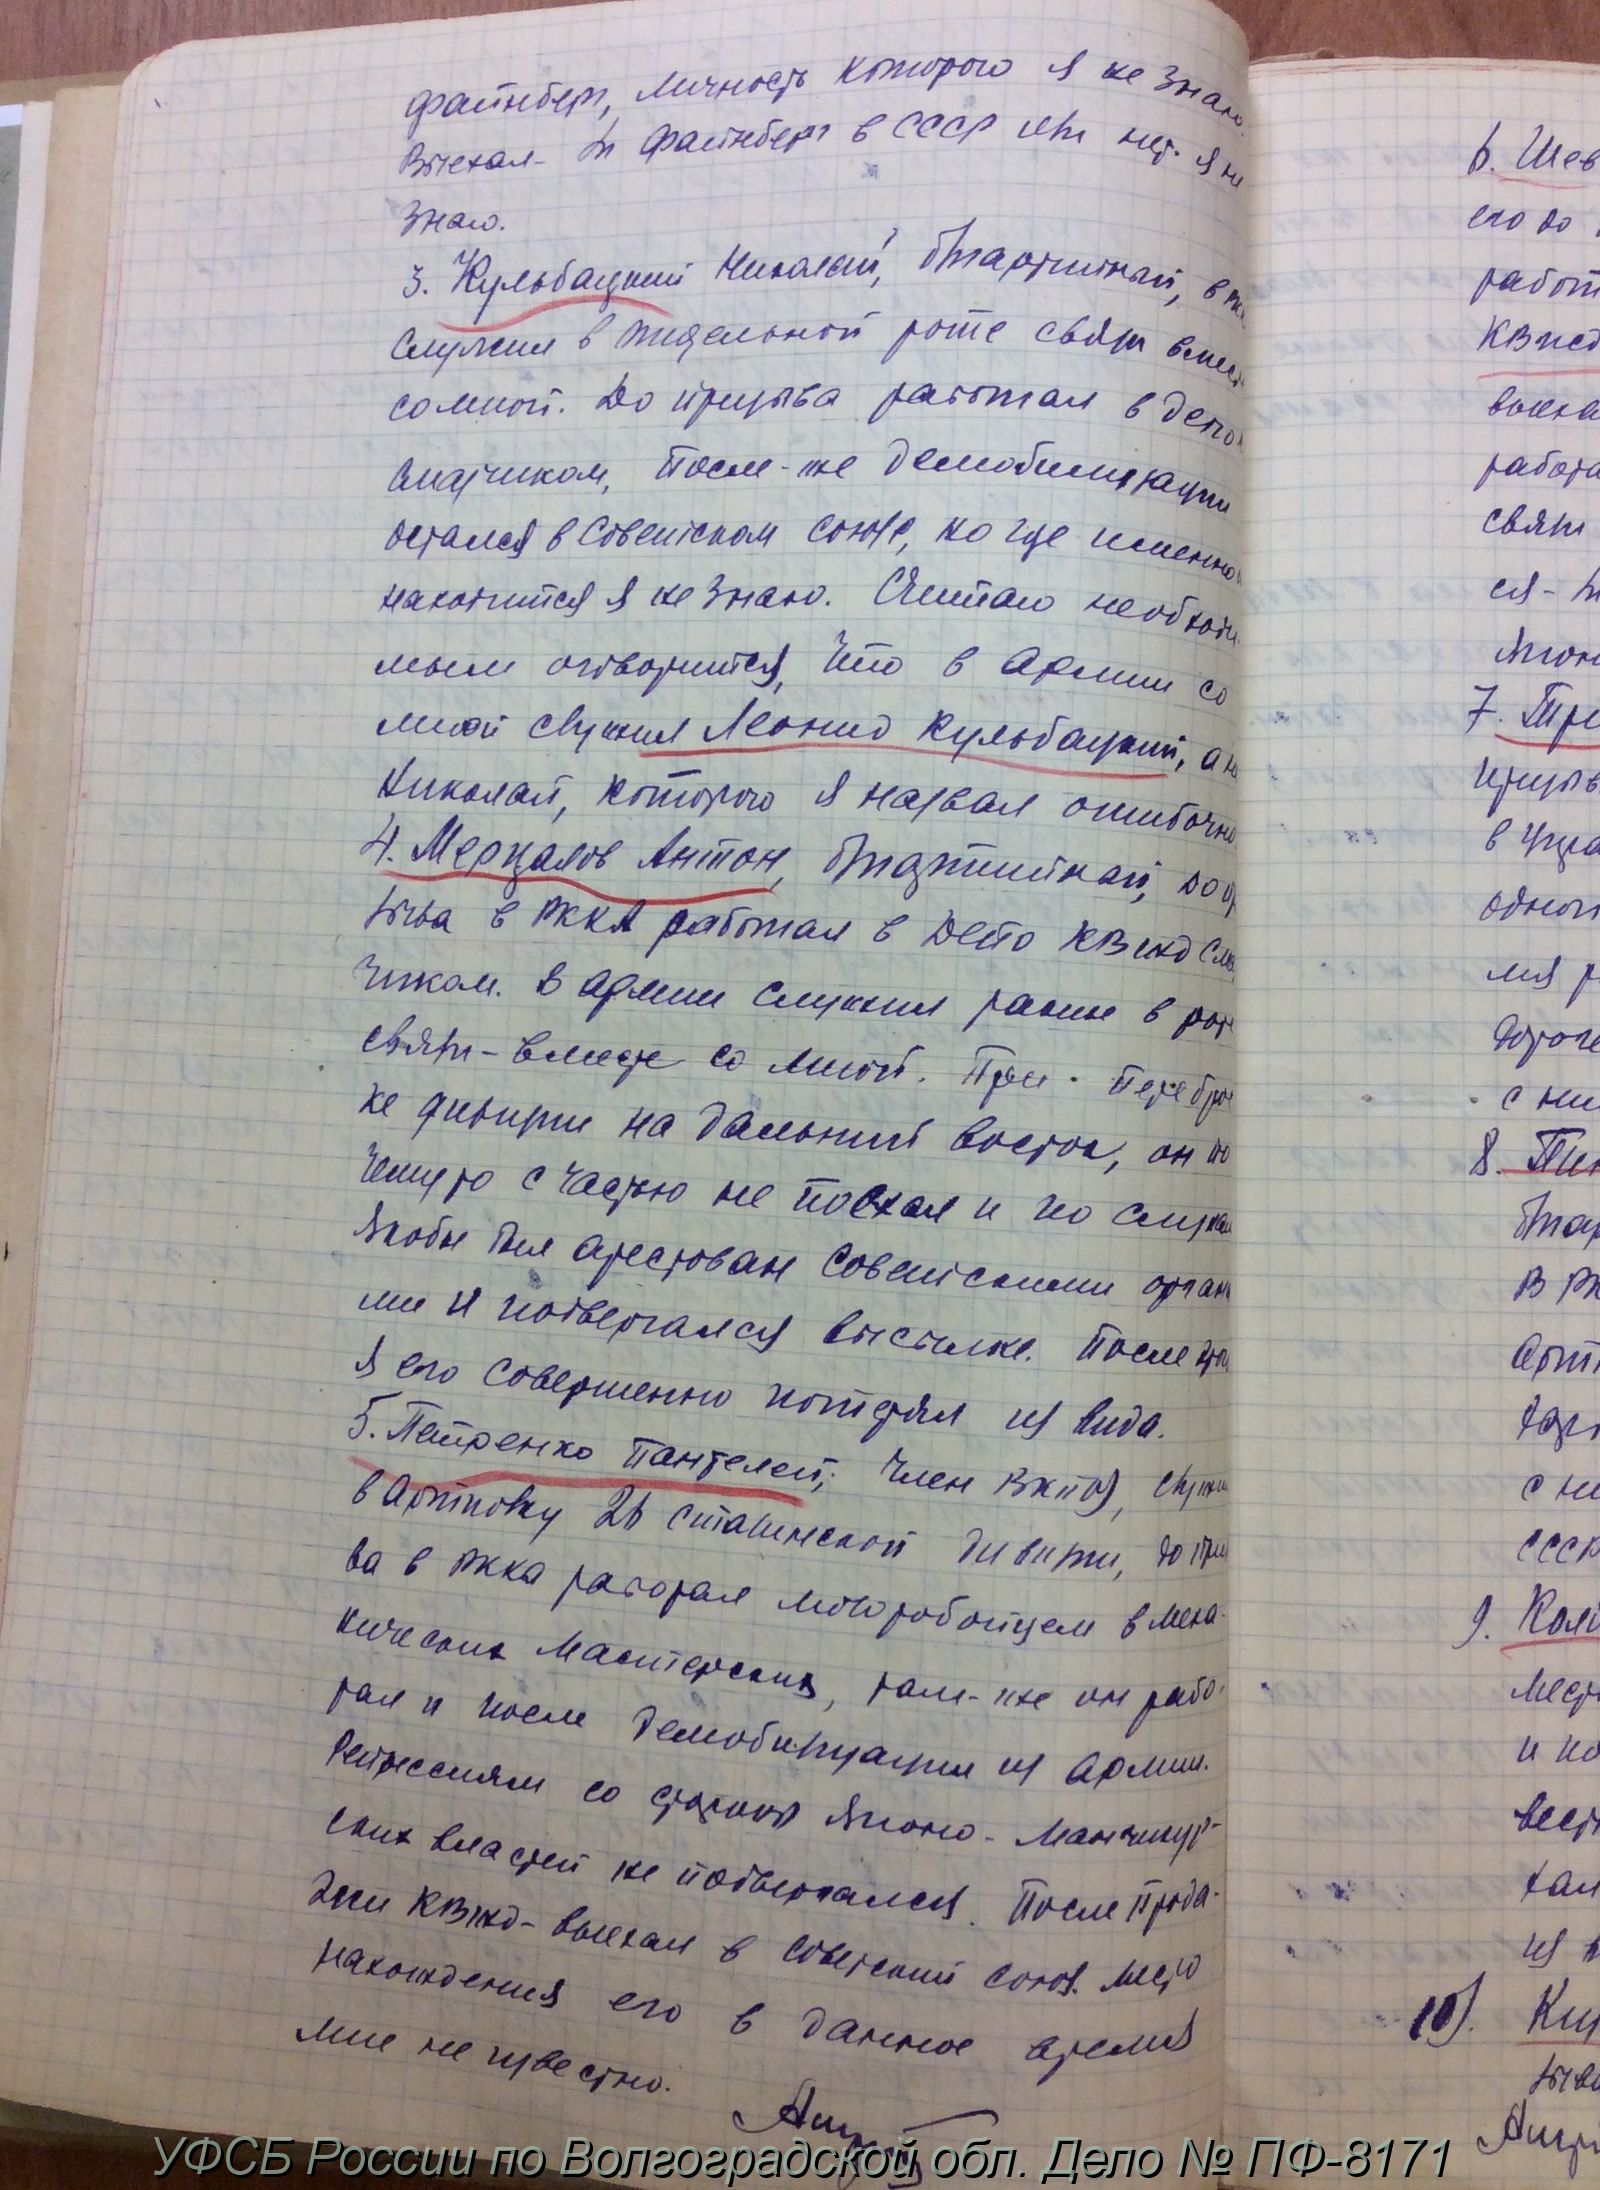 Файнберг, личность которого я не знаю.
Выехал-ли Файнберг в СССР или нет я не
знаю.
3. Кульбацкий Николай, беспартийный, в
служил в отдельной роте связи вмест
со мной. До призыва работал в депо
смазчиком, после-же демобилизации
остался в Советском Союзе, но где именно
находится я не знаю. Считаю необходи-
мым оговориться, что в армии со
мной служил Леонид Кульбацкий, а не
Николай, которого я назвал ошибочно
4. Мерцалов Антон, беспартийный, до пр
зыва в РККА работал в депо КВжд сма
чиком. В армии служил также в роте
связи-вместе со мной. При переброс
ке дивизии на Дальний Восток, он по
чему то с частью не поехал и по слухам
якобы был арестован Советскими органа
ми и подвергался высылке. После этого
я его совершенно потерял из вида.
5. Петренко Пантелей, член ВКП(б), служил
в Артполку 26 сталинской дивизии, до при
ва в РККА работал молотобойцем в меха-
нических мастерских, там-же он рабо-
тал и после демобилизации из армии.
Репрессиям со стороны Японо-Манчжур-
ских властей не подвергался. После прода-
жи КВжд-выехал в Советский Союз. Место
нахождения его в данное время
мне не известно.
6. Шев
его до
работ
КВжд
выеха
работа
связи
ся-
Япон
7. Тре
призыв
в
одного
мя р
дороге
с ни
8.
В РК
Арт
с не
СССР
9.
мест
и по
вест
хал
из в
10).
УФСБ России по Волгоградской обл. Дело № ПФ-8171